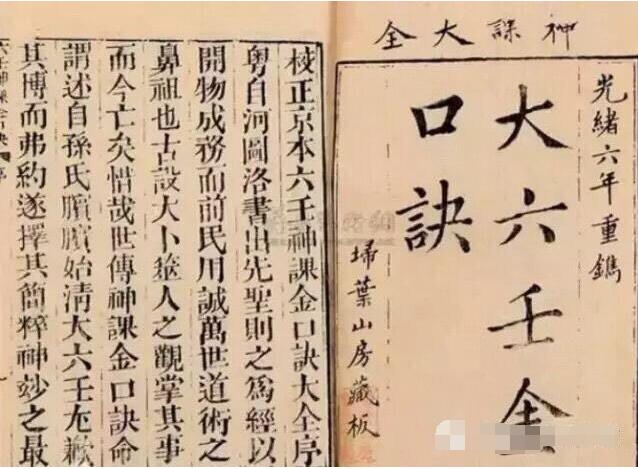 神課大全
光緒六年重鐫
大六壬金
口訣
掃葉山房藏板
校正京本六壬神課金口訣大全序
粵自河圖洛書出先聖則之爲經以
開物成務而前民用誠萬世道術之
鼻祖也古設大卜筮人之觀掌其事
而今亡矣惜哉世傳神課金口訣命
謂述自孫氏臏臏始清大六壬歉
其博而弗約遂擇其簡粹神妙之最